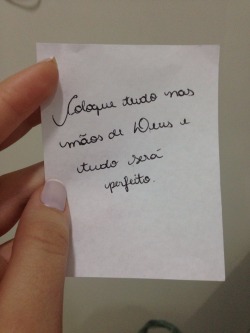 Coloque tudo nas
mãos de Deus e
tudo será
perfeito.